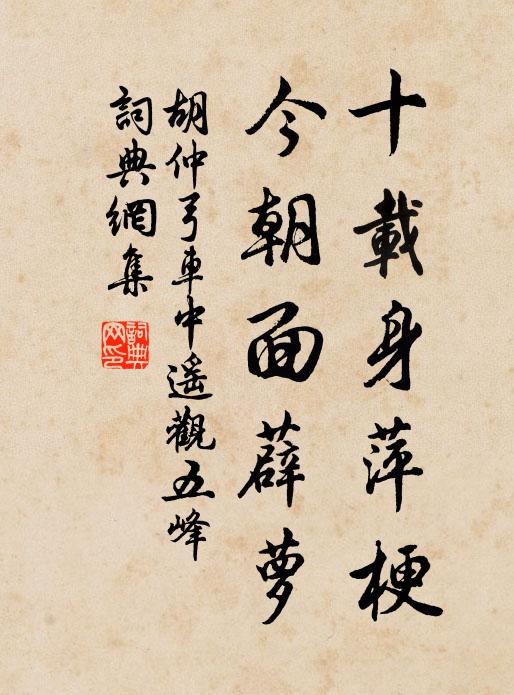 十載身萍梗
今朝面薜夢
胡仲弓車中遥觀五峰
詞典網集
詞典网印